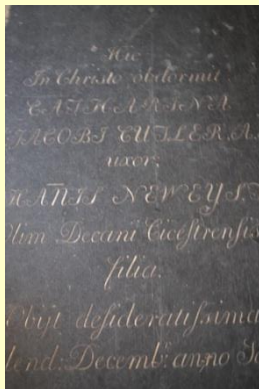 Hic
In Christo obdormit
CATHARINA
JACOBI CUTLER, A.
uxor,
HANIS NEWEY, S.
Olim Decani Cicestrensis
filia.
Obijt desideratissima
Decemb: anno